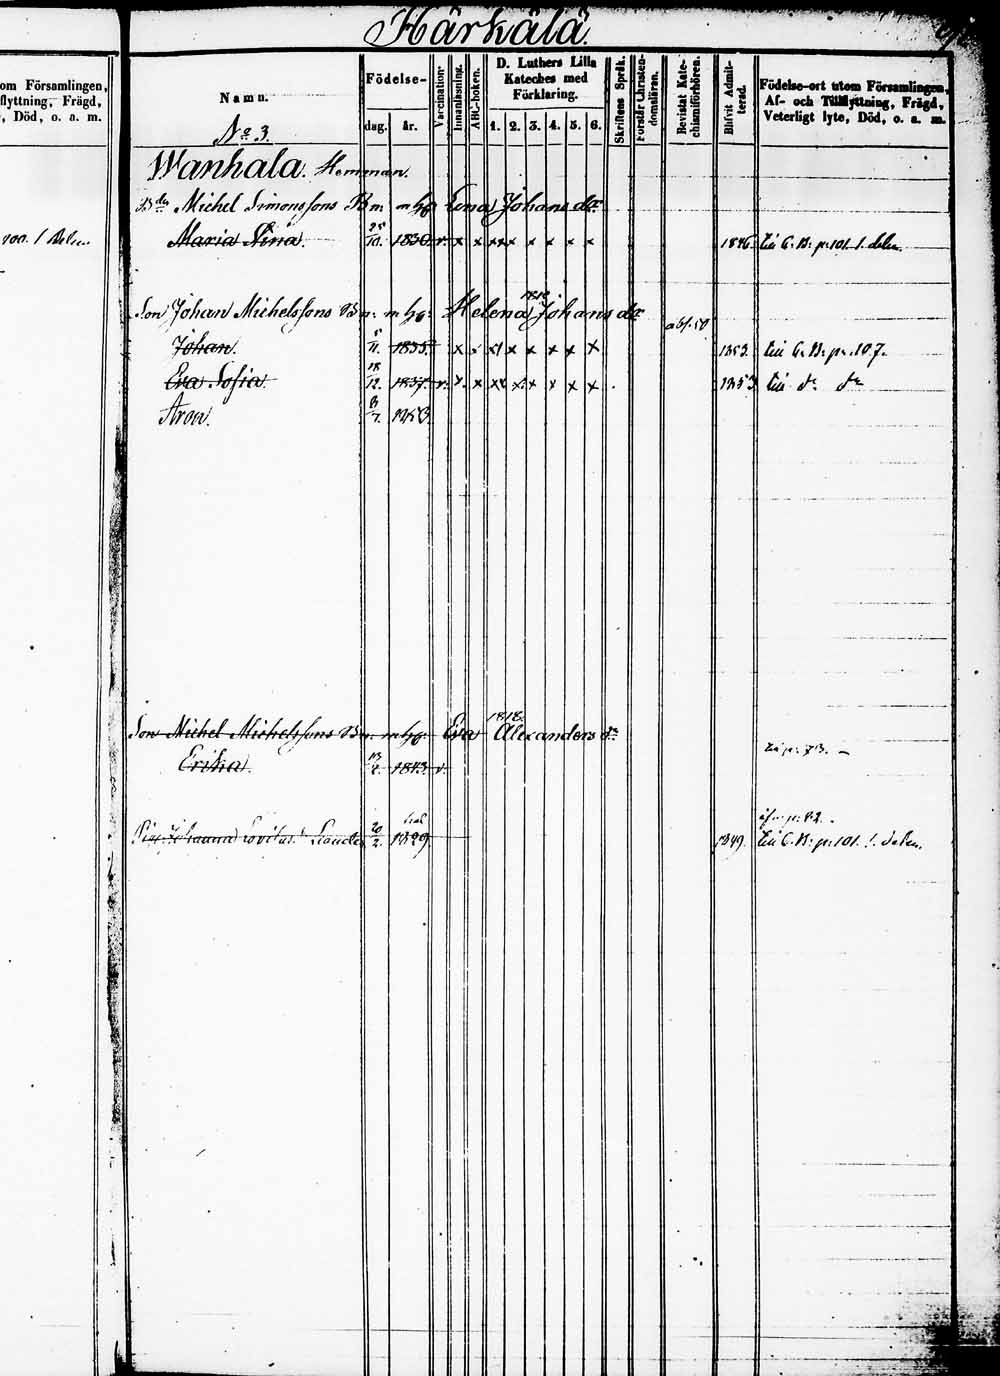 Härkälä
om Församlingen,
flyttning, Frägd,
, Död, o. a. m.
Namn.
Födelse-
dag. år.
Vaccination.
Innanläsning.
ABC-boken.
D. Luthers Lilla
Kateches med
Förklaring.
1. 2. 3. 4. 5. 6.
Skriftens Språk.
Förstår Christen-
domsläran.
Bevistat Kate-
chismiförhören.
Blifvit Admit-
terad.
Födelse-ort utom Församlingen,
Af- och Tillflyttning, Frägd,
Veterligt lyte, Död, o. a. m.
No 3.
Wanhala. Hemman.
Michel Simonssons Lena Johans dr
Maria Stina 25/10. 1830. v. x x xx x x x x x 1846. p. 101. 1. delen.
1812
Son Johan Michelssons Helena Johans dr
Johan. 5/11. 1835. x x x x x x x x 1853. C. B: p. 107.
Eva Sofia 18/12. 1837. v. x. x x x x x x x 1853 dr dr
Aron. 1850
1818.
Son Michel Michelssons Eva Alexanders dr
Erika. 13/2. 1843. v.
p. 82.
Johanna Lovisa 20/2. 1829 1849. C. B: p. 101. 1. delen.